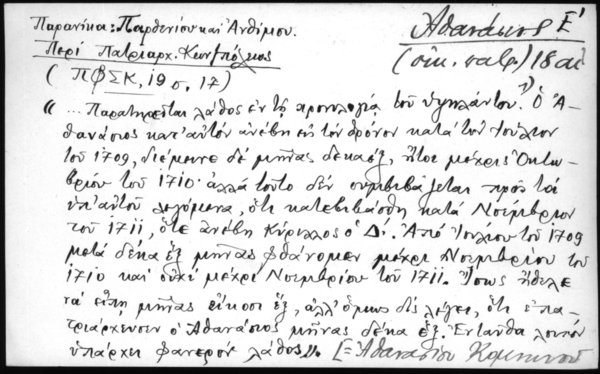 Παρανίκα: Παρθενίου και Ανθίμου.
Περί Πατριαρχ. Κων/πόλεως
(ΠΦΣΚ, 19 σ. 17)
Αθανάσιος Ε'
(οικ. πατρ.) 18 αι
« ... Παρατηρείται λάθος εν τη χρονολογία του Υψηλάντου. 1) Ο Α-
θανάσιος κατ' αυτόν ανέβη εις τον θρόνον κατά τον Ιούλιον
του 1709, διέμεινε δε μήνας δεκαέξ, ήτοι μέχρις Οκτω-
βρίου του 1710· αλλά τούτο δεν συμβιβάζεται προς τα
υπ' αυτού λεγόμενα, ότι κατεβιβάσθη κατά Νοέμβριον
του 1711, ότε ανέβη Κύριλλος ο Δ'. Από Ιουλίου του 1709
μετά δέκα έξ μήνας φθάνομεν μέχρι Νοεμβρίου του
1710 και ουχί μέχρι Νοεμβρίου του 1711. Ίσως ήθελε
να είπη μήνας είκοσι έξ, αλλ' όμως δις λέγει, ότι επα-
τριάρχευσεν ο Αθανάσιος μήνας δέκα έξ. Ενταύθα λοιπόν
υπάρχει φανερόν λάθος». [= Αθανασίου Κομνηνού